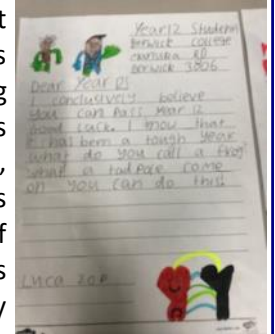 t
s
g
s
,
s
f
s
y
Year 12 Students
Berwick College
Manuka RD
Berwick 3806
Dear Year 12
I conclusively believe
you can pass Year 12
Good luck. I know that
it has been a tough year
what do you call a frog?
what a tadpole come
on you can do this!
Luca